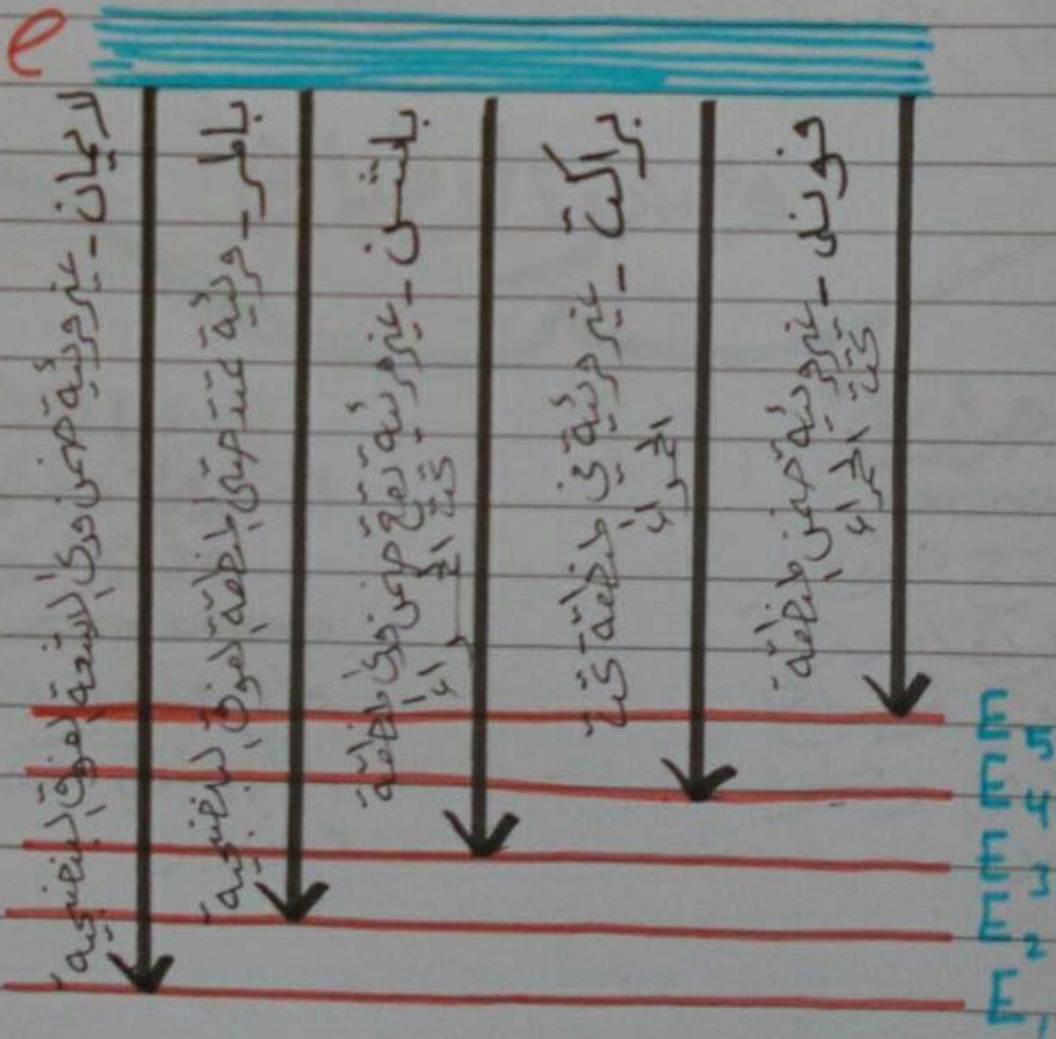 e
لايمان - غير مرئية ضمن مدى الاشعة الفوق البنفسجية
بالمر - مرئية تمتد حتى المنطقة الفوق البنفسجية
باشن - غير مرئية تقع ضمن مدى المنطقة
تحت الحمراء
براكت - غير مرئية في المنطقة تحت
الحمراء
فوند - غير مرئية ضمن المنطقة
تحت الحمراء
E5
E4
E3
E2
E1